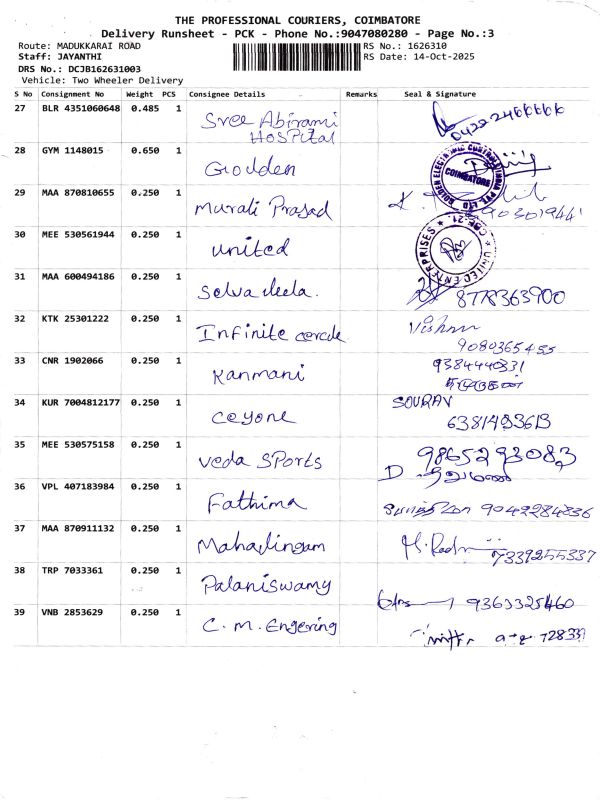 THE PROFESSIONAL COURIERS, COIMBATORE
Delivery Runsheet - PCK - Phone No.:9047080280 - Page No.:3
Route: MADUKKARAI ROAD RS No.: 1626310
Staff: JAYANTHI RS Date: 14-Oct-2025
DRS No.: DCJB162631003
Vehicle: Two Wheeler Delivery
S No Consignment No Weight PCS Consignee Details Remarks Seal & Signature
27 BLR 4351060648 0.485 1 Sree Abirami
HOSPital
0422-2466666
28 GYM 1148015 0.650 1 Golden
COIMBATORE
29 MAA 870810655 0.250 1 Murali Prasad
30 MEE 530561944 0.250 1 United
UNITED ENTERPRISES
CBE-21
31 MAA 600494186 0.250 1 Selva leela. 8778363900
32 KTK 25301222 0.250 1 Infinite Vishnu
9080365455
33 CNR 1902066 0.250 1 Kanmani 9384440331
34 KUR 7004812177 0.250 1 Ceyone SOURAV
6381493613
35 MEE 530575158 0.250 1 Veda SPorts 9865293083
D
36 VPL 407183984 0.250 1 Fathima 9042284836
37 MAA 870911132 0.250 1 Mahalingam 7339255337
38 TRP 7033361 0.250 1 Palaniswamy 9363325460
39 VNB 2853629 0.250 1 C. M. Engering